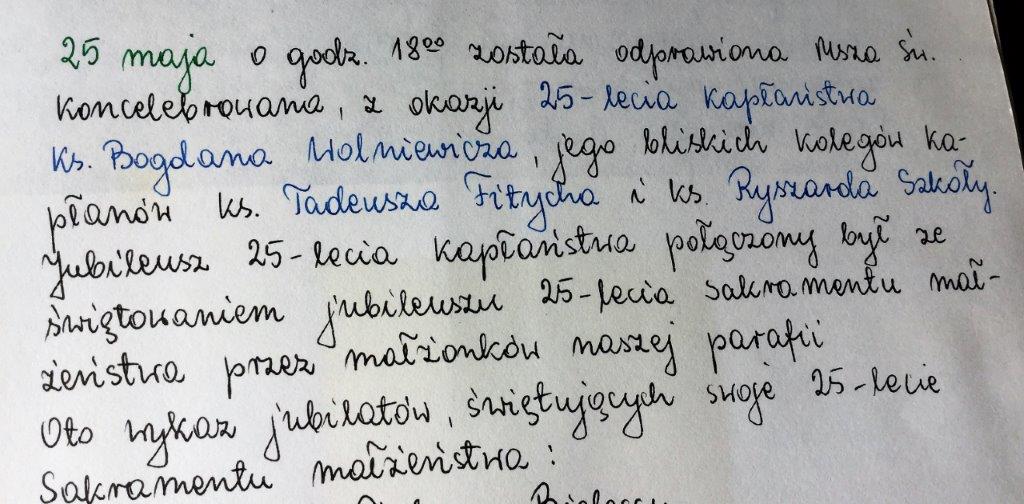 25 maja o godz. 18⁰⁰ została odprawiona Msza Św.
koncelebrowana, z okazji 25-lecia kapłaństwa
ks. Bogdana Wolniewicza, jego bliskich kolegów ka-
płanów ks. Tadeusza Fitycha i ks. Ryszarda Szkoły.
Jubileusz 25-lecia kapłaństwa połączony był ze
świętowaniem jubileuszu 25-lecia sakramentu mał-
żeństwa przez małżonków naszej parafii
Oto wykaz jubilatów, świętujących swoje 25-lecie
Sakramentu małżeństwa: